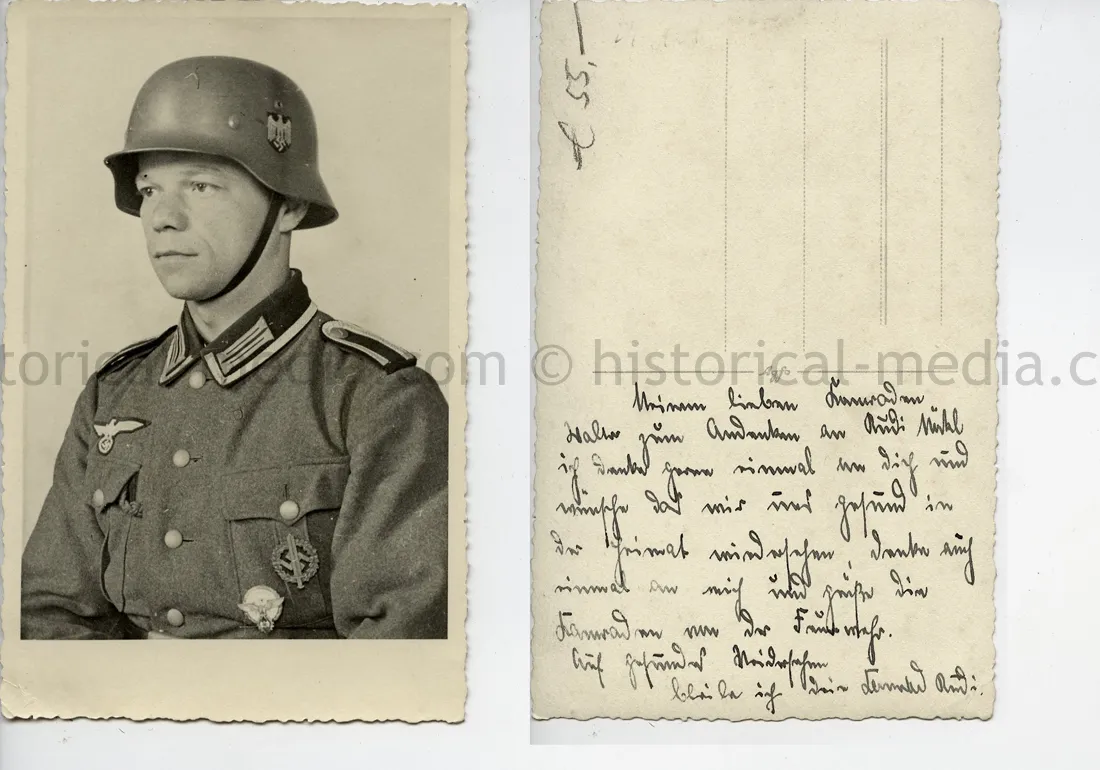 € 55,—
© historical-media.com
Meinem lieben Kamraden
Walter zum Andenken an Rudi
ich denke gerne einmal an dich und
wünsche das wir uns gesund in
der Heimat wiedersehen, denke auch
einmal an mich und grüße die
Kamraden von der Feuerwehr.
Auf gesundes Wiedersehen
bleibe ich dein Kamerad Rudi.